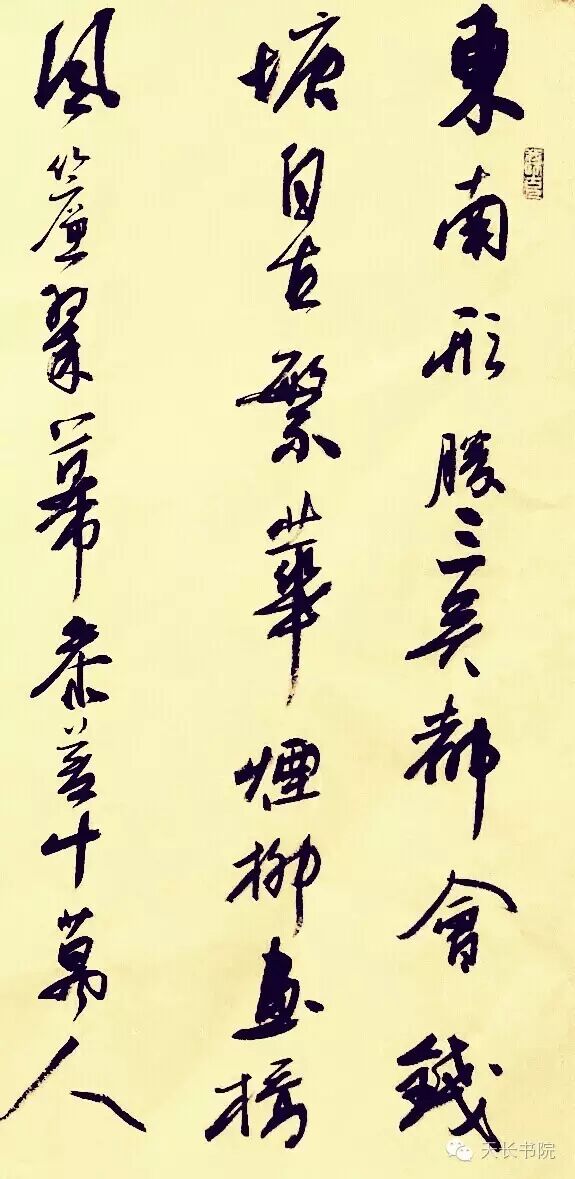 東南形勝三吳都會錢
塘自古繁華煙柳畫橋
風簾翠幕參差十萬人
天长书院